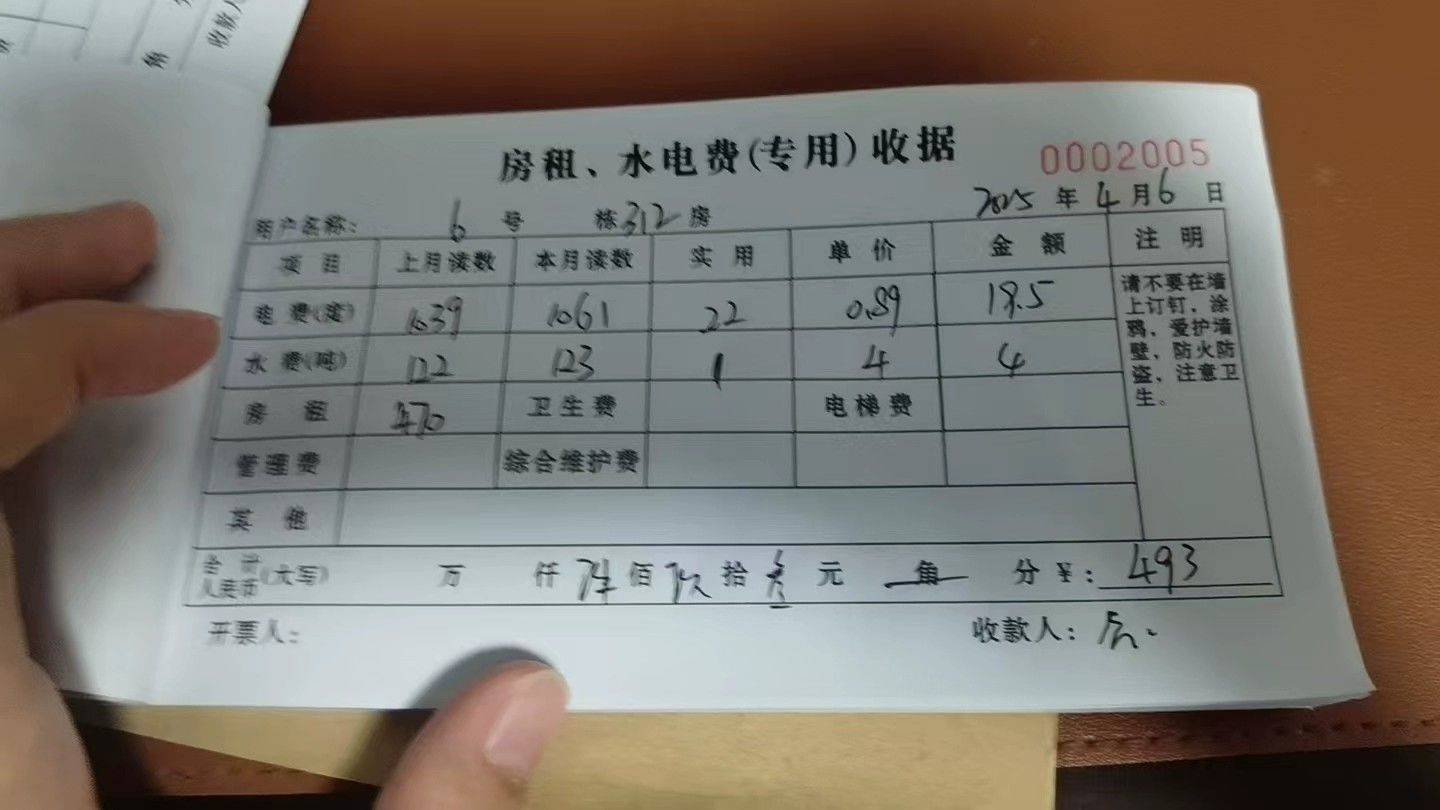 角
收款人
房租、水电费(专用)收据 0002005
用户名称: 6 号 栋312房 2025 年 4 月 6 日
项 目 上月读数 本月读数 实 用 单 价 金 额 注 明
电 费(度) 1039 1061 22 0.89 19.5
水 费(吨) 122 123 1 4 4
房 租 470 卫生费 电梯费
管理费 综合维护费
其 他
请不要在墙
上订钉，涂
鸦，爱护墙
壁，防火防
盗，注意卫
生。
合 计
人民币(大写) 万 仟 肆 佰 玖 拾 叁 元 角 分 ¥: 493
开票人: 收款人: